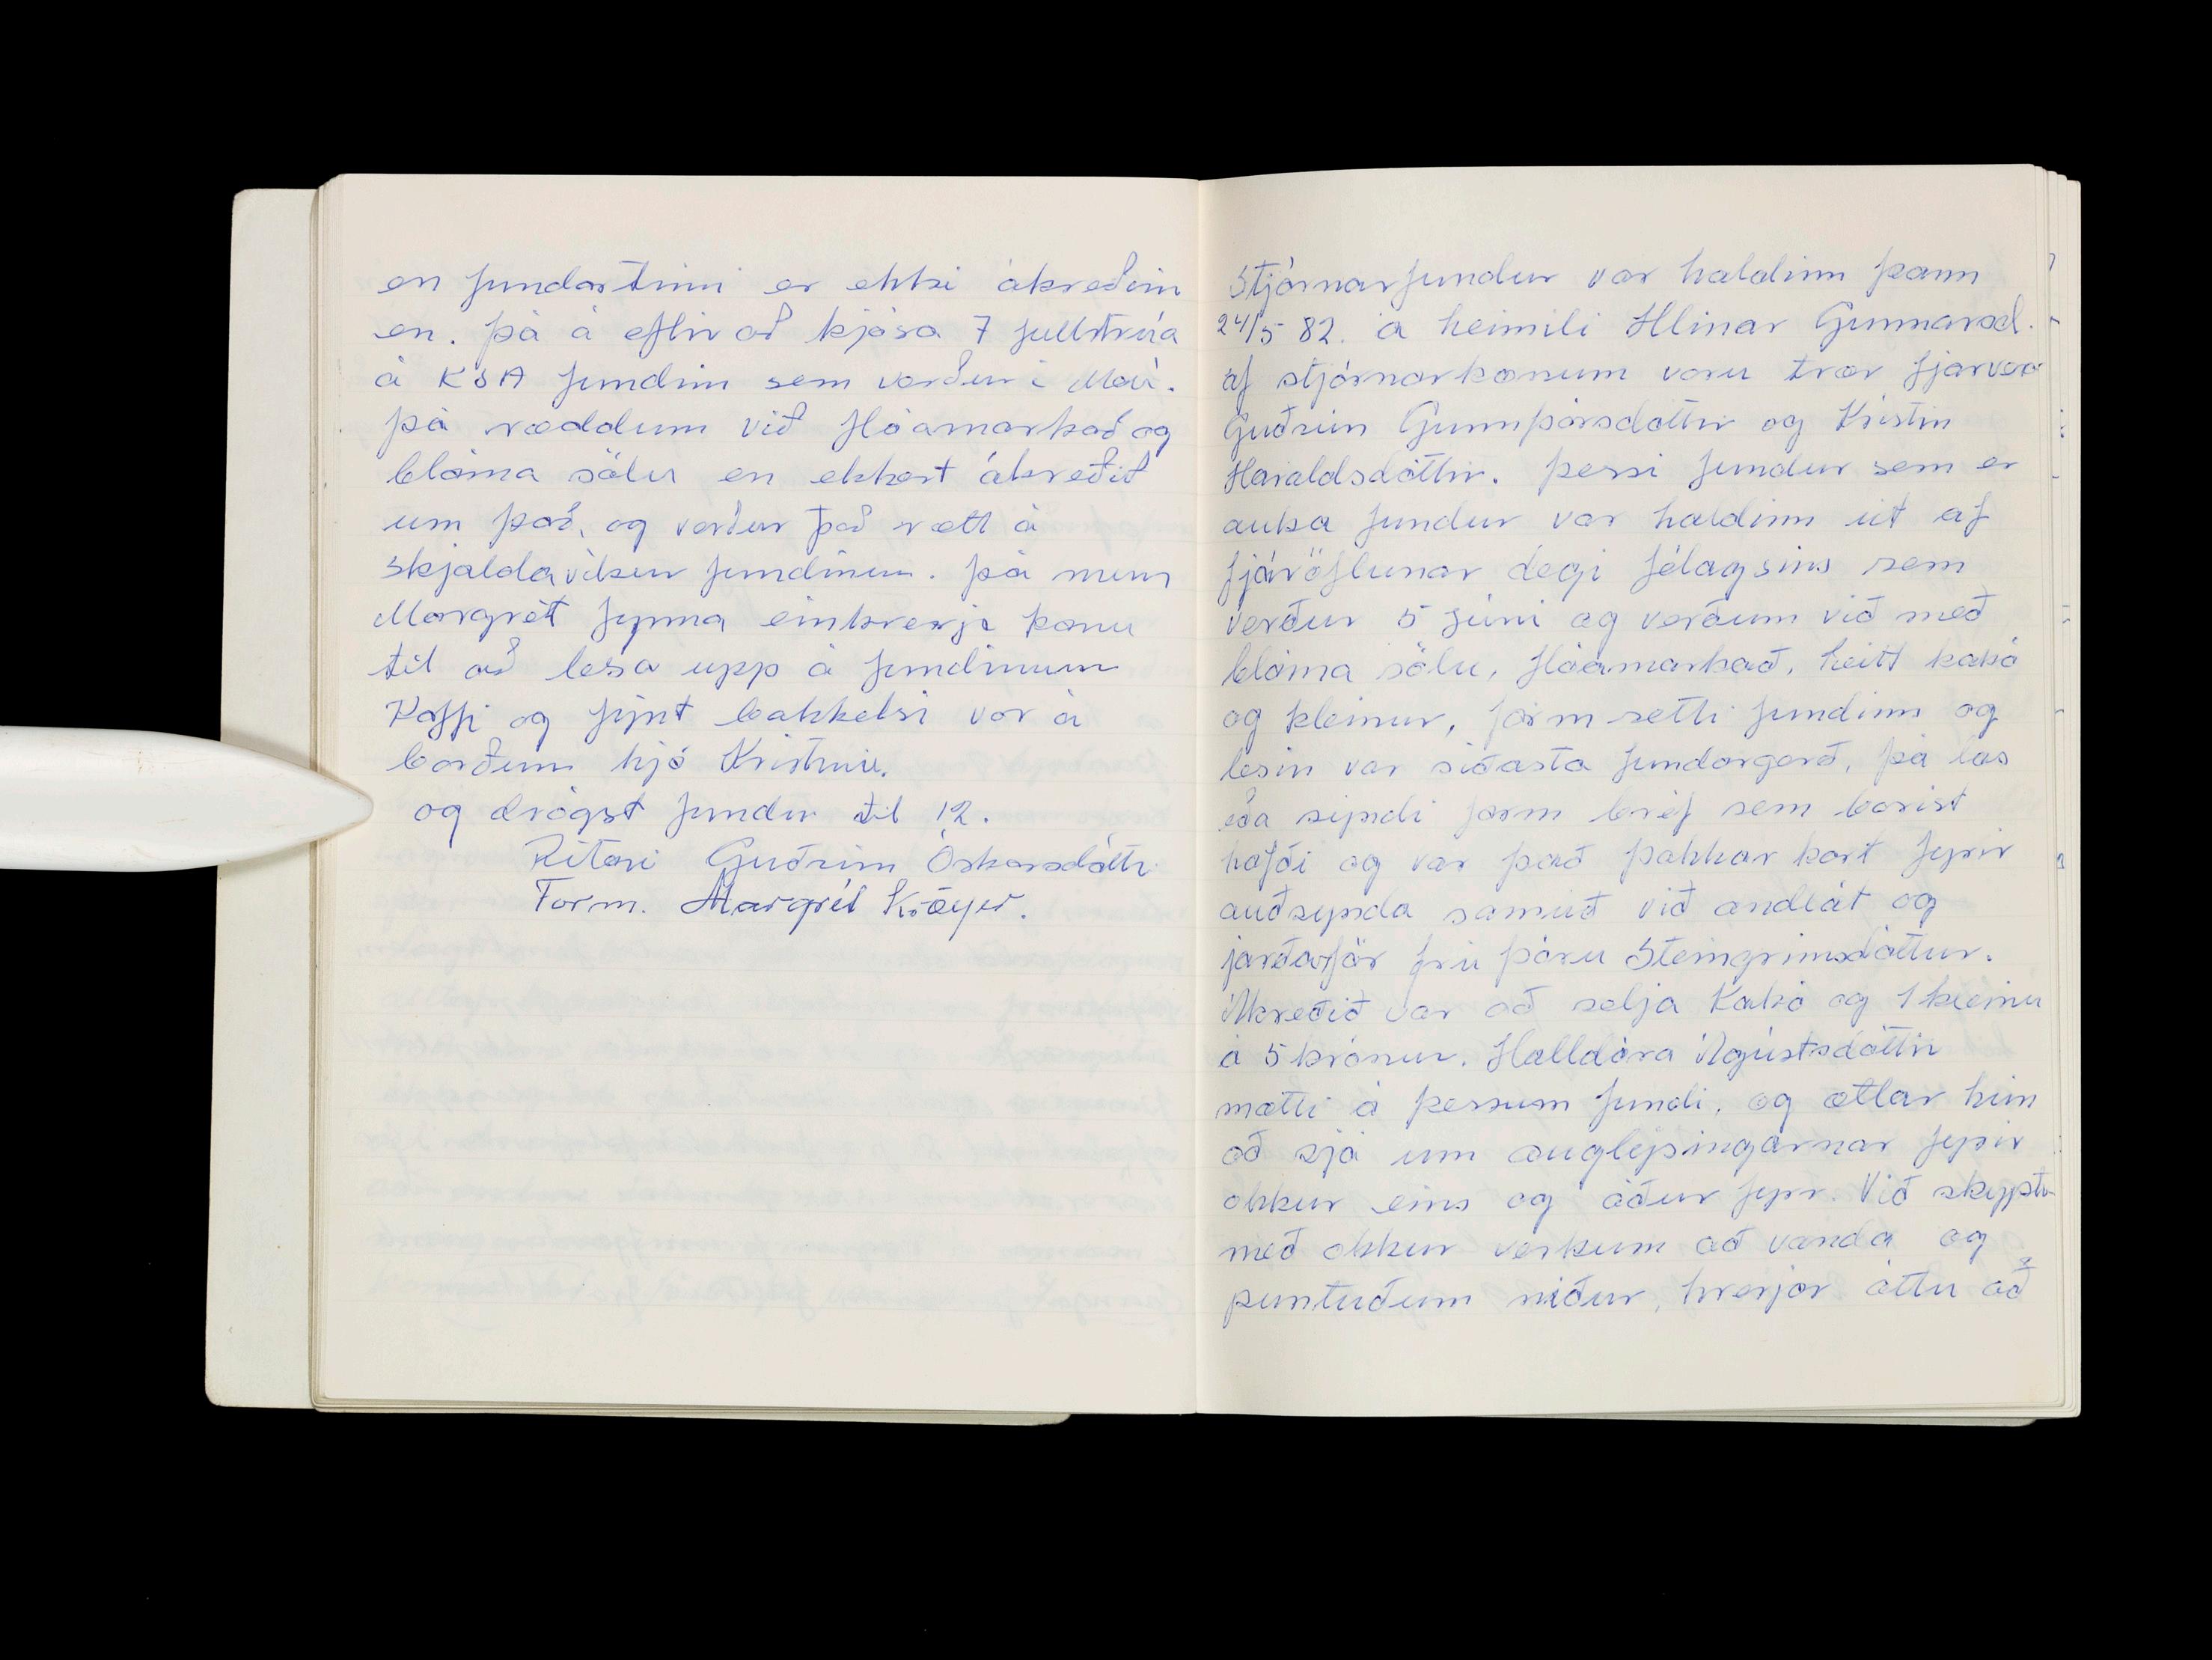 en fundartími er ekki ákveðin
en. þá á eftir að kjósa 7 fulltrúa
á KSA fundin sem verður í Maí.
þá ræddum við flóamarkað og
blóma sölu en ekkert ákveðið
um það, og verður það rætt á
skjaldavíkur fundinum. þá mun
Margrét fynna einhverja konu
til að lesa upp á fundinum
Kaffi og fýnt bakkelsi var á
borðum hjá Kristínu.
og drógst fundur til 12.
Ritari Guðrún Óskarsdóttir
Form. Margrét Kröyer.
Stjórnarfundur var haldinn þann
24/5 82. á heimili Hlínar Gunnarsd.
af stjórnarkonum voru tvær fjarver
Guðrún Gunnþórsdóttir og Kristín
Haraldsdóttir. þessi fundur sem er
auka fundur var haldinn út af
fjáröflunar degi félagsins sem
verður 5 júní og verðum við með
blóma sölu, flóamarkað, heitt kakó
og kleinur, form setti fundinn og
lesin var síðasta fundargerð, þá las
eða sýndi form bréf sem borist
hafði og var það þakkar kort fyrir
auðsynda samúð við andlát og
jarðarför frú þóru Steingrímsdóttur.
Ákveðið var að selja Kakó og 1 kleinu
á 5 krónur. Halldóra Ágústsdóttir
mætti á þessum fundi, og ætlar hún
að sjá um auglýsingarnar fyrir
okkur eins og áður fyrr. Við skyptu
með okkur verkum að vanda og
puntuðum niður, hverjar áttu að